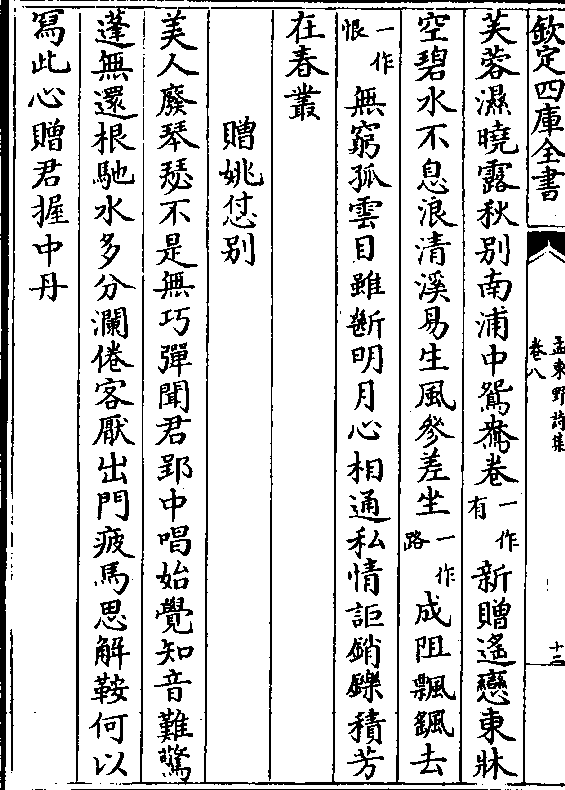 欽定四庫全書
孟東野詩集
卷八
十二
芙蓉濕曉露秋別南浦中鴛鴦卷一作有新贈遙戀東牀
空碧水不息浪清溪易生風參差坐一作路成阻飄颻去
一作恨無窮孤雲目雖斷明月心相通私情詎銷鑠積芳
在春叢
贈姚怤别
美人廢琴瑟不是無巧彈聞君郢中唱始覺知音難驚
蓬無還根馳水多分瀾倦客厭出門疲馬思解鞍何以
寫此心贈君握中丹